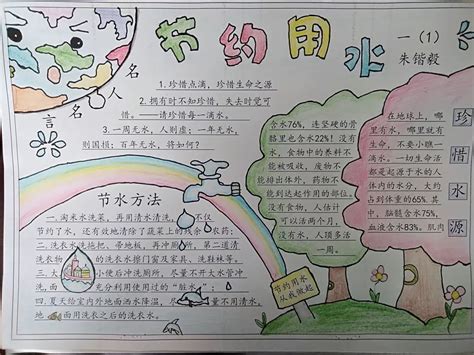 节约用水
一（1）
朱锴毅
名人名言
1.珍惜点滴，珍惜生命之源
2.拥有时不知珍惜，失去时觉可
惜。——请珍惜每一滴水。
3.一周无水，人则虚；一年无水，
则国损；百年无水，将如何？
节水方法
一.淘米水洗菜，再用清水清洗，不仅
节约了水，还有效地清除了蔬菜上的残余农药；
二.洗衣水洗拖把、带地板，再冲厕所，第二道清
洗衣物的洗衣水擦门窗及家具、洗鞋袜等；
三.大小便后冲洗厕所，尽量不开大水管冲
洗，而充分利用使用过的“脏水”；
四.夏天给室内外地面洒水降温，尽量不用清水，
地面用洗衣之后的洗衣水。
含水76%，连坚硬的骨
骼里也含水22%！没有
水，食物中的养料不
能被吸收，废物不
能排出体外，药物不
能到达起作用的部位。
没有食物，人估计
可以活两个月，
没有水，人顶多活
一周。
在地球上，哪
里有水，哪里就有
生命，不要小瞧一
滴水。一切生命活
都是起源于水的人
体内的水分，大约
占到体重的65%。
其中，脑髓含水75%，
血液含水83%，肌肉
珍惜水源
节约用水
从我做起